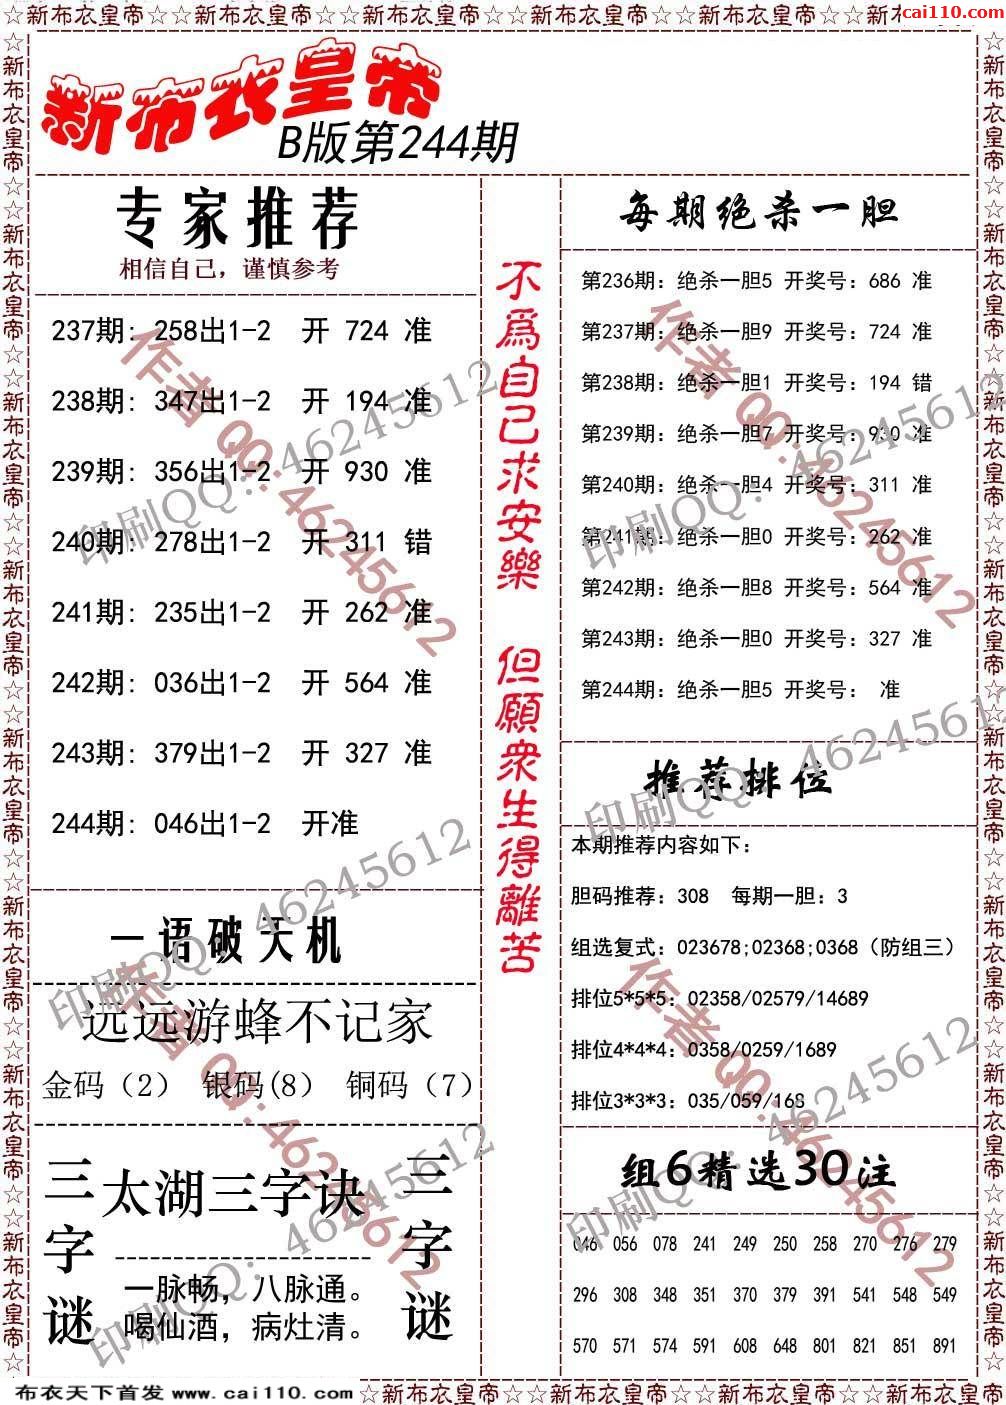 ☆新布衣皇帝☆新布衣皇帝☆新布衣皇帝☆新布衣皇帝☆新布衣皇帝☆新布衣皇帝☆新
cai110.com
新布衣皇帝
B版第244期
专家推荐
相信自己，谨慎参考
237期: 258出1-2 开 724 准
238期: 347出1-2 开 194 准
239期: 356出1-2 开 930 准
240期: 278出1-2 开 311 错
241期: 235出1-2 开 262 准
242期: 036出1-2 开 564 准
243期: 379出1-2 开 327 准
244期: 046出1-2 开准
一语破天机
远远游蜂不记家
金码（2） 银码(8） 铜码（7）
三字谜
太湖三字诀
一脉畅，八脉通。
喝仙酒，病灶清。
三字谜
不為自己求安樂 但願衆生得離苦
每期绝杀一胆
第236期：绝杀一胆5 开奖号：686 准
第237期：绝杀一胆9 开奖号：724 准
第238期：绝杀一胆1 开奖号：194 错
第239期：绝杀一胆7 开奖号：930 准
第240期：绝杀一胆4 开奖号：311 准
第241期：绝杀一胆0 开奖号：262 准
第242期：绝杀一胆8 开奖号：564 准
第243期：绝杀一胆0 开奖号：327 准
第244期：绝杀一胆5 开奖号： 准
推荐排位
本期推荐内容如下：
胆码推荐：308 每期一胆：3
组选复式：023678;02368;0368（防组三）
排位5*5*5：02358/02579/14689
排位4*4*4：0358/0259/1689
排位3*3*3：035/059/168
组6精选30注
046 056 078 241 249 250 258 270 276 279
296 308 348 351 370 379 391 541 548 549
570 571 574 591 608 648 801 821 851 891
作者QQ:46245612
印刷QQ：46245612
作者QQ:46245612
印刷QQ：46245612
印刷QQ：46245612
印刷QQ：46245612
作者QQ:46245612
作者QQ:46245612
印刷QQ：46245612
印刷QQ：46245612
布衣天下首发 www.cai110.com
☆新布衣皇帝☆新布衣皇帝☆新布衣皇帝☆新布衣皇帝☆